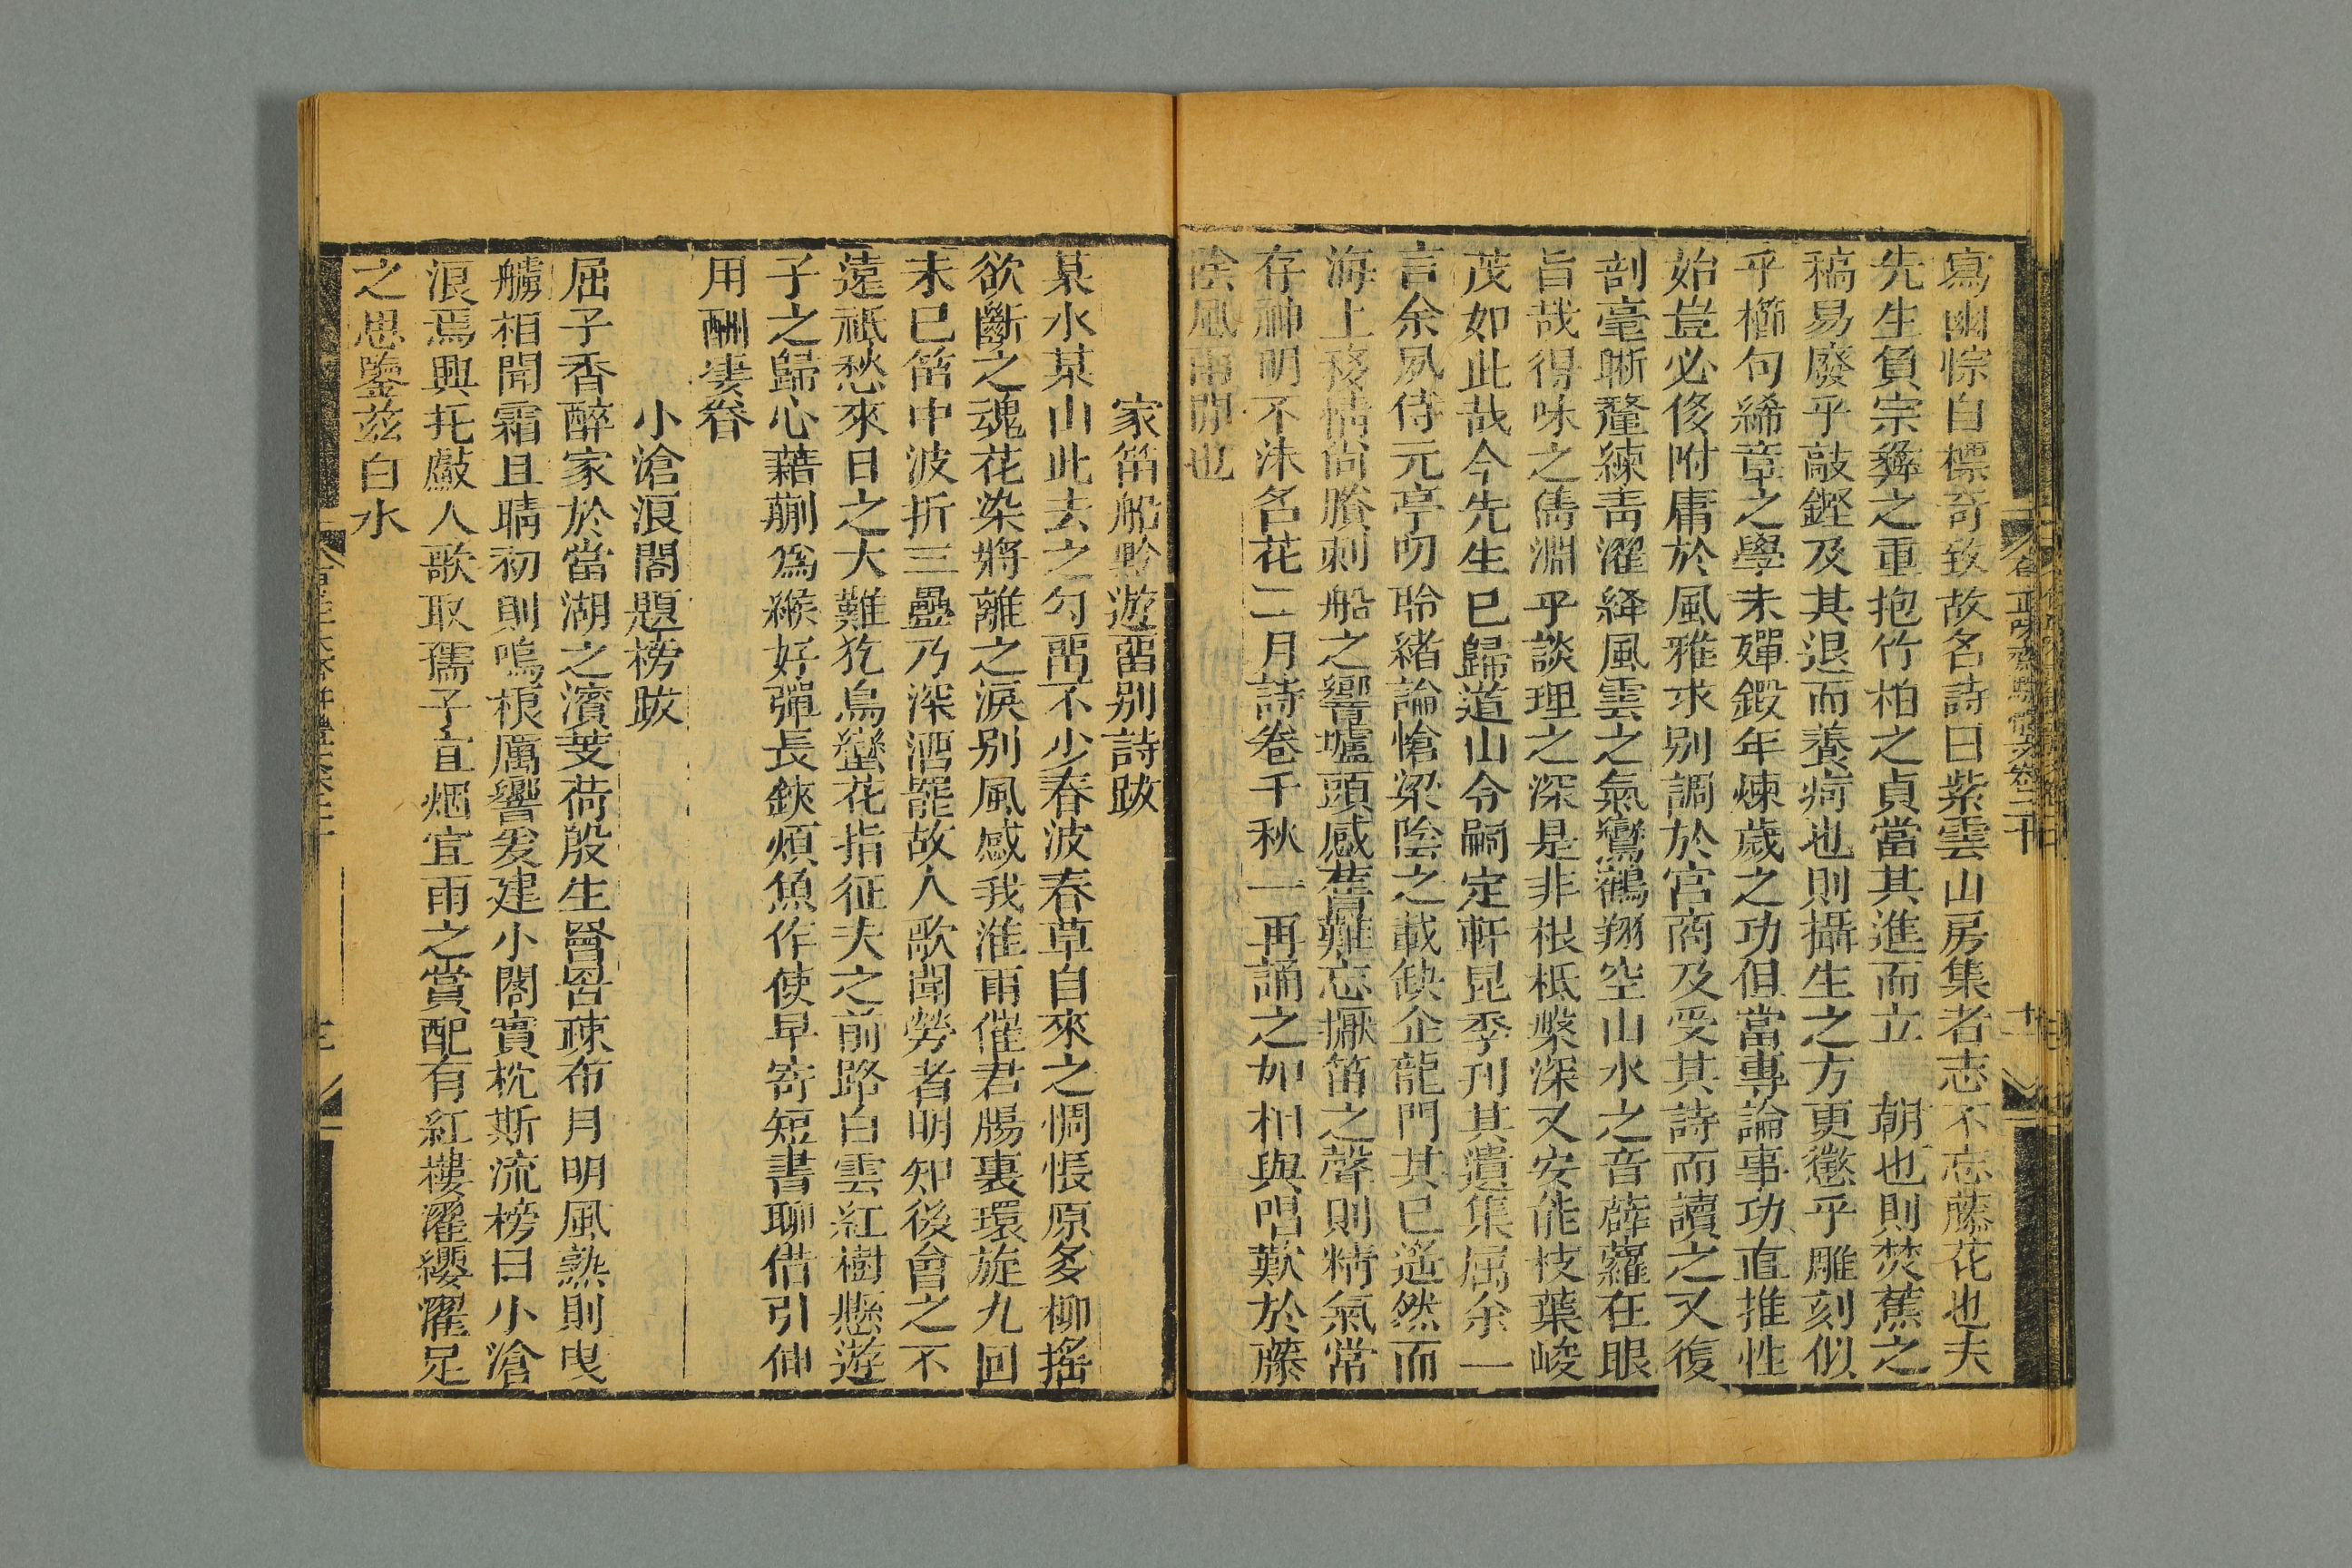 寫幽悰自標奇致故名詩曰紫雲山房集者志不忘藤花也夫
先生負宗彝之重抱竹柏之貞當其進而立　朝也則焚蕉之
稿易廢乎敲鏗及其退而養疴也則攝生之方更懲乎雕刻似
乎櫛句絺章之學未殫鍜年煉歲之功但當專論事功直推性
始豈必侈附庸於風雅求别調於宮商及受其詩而讀之又復
剖毫晰釐練靑濯絳風雲之氣鸞鶴翔空山水之音薜蘿在眼
旨哉得味之雋淵乎談理之深是非根柢槃深又安能枝葉峻
茂如此哉今先生已歸道山令嗣定軒昆季刊其遺集属余一
言余夙侍元亭叨聆緒論愴梁陰之載缺企龍門其已遥然而
海上移情尚賸刺船之響壚頭感舊難忘擫笛之聲則精氣常
存神明不沫名花二月詩卷千秋一再誦之如相與唱歎於藤
陰風雨間也
家笛船黔遊畱别詩跋
某水某山此去之勾畱不少春波春草自來之惆悵原多柳搖
欲斷之魂花染將離之淚别風感我淮雨催君腸裏環旋九回
未已笛中波折三疊乃深酒罷故人歌闌勞者明知後會之不
遠祇愁來日之大難犵鳥蠻花指征夫之前路白雲紅樹懸遊
子之歸心藉蒯爲緱好彈長鋏煩魚作使早寄短書聊偕引伸
用酬凄眷
小滄浪閣題榜跋
屈子香醉家於當湖之濱芰荷殷生罾罟疎布月明風熟則曳
艣相聞霜且晴初則鳴榔厲響爰建小閣實枕斯流榜曰小滄
浪焉興托䱷人歌取孺子宜烟宜雨之賞配有紅樓濯纓濯足
之思鑒兹白水